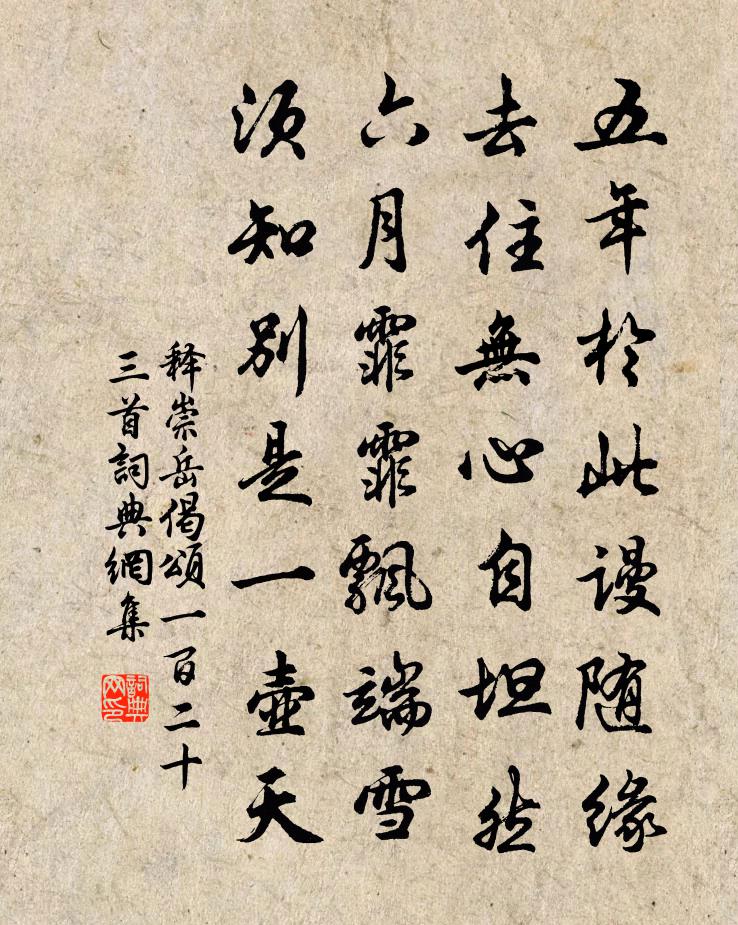 五年於此謾随緣
去住無心自坦然
六月霏霏飄端雪
須知別是一壺天
释崇岳偈頌一百二十
三首詞典網集
詞典
网印